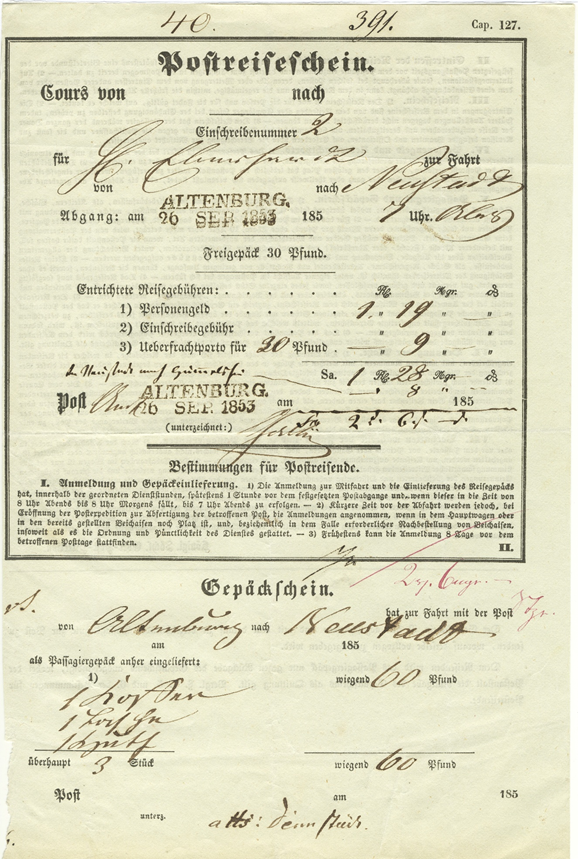 40. 391. Cap. 127.
Postreiseschein.
Cours von nach
Einschreibenummer 2
für H. zur Fahrt
von nach Neustadt
ALTENBURG.
Abgang: am 26 SEP 1853 185 7 Uhr.
Freigepäck 30 Pfund.
Entrichtete Reisegebühren: . . . . . . Ngr.
1) Personengeld . . . . . . . 1 „ 19 „ „
2) Einschreibegebühr . . . . . . „ „ „
3) Ueberfrachtporto für 30 Pfund . — „ 9 „ „
Sa. 1 28 Ngr. „
8
ALTENBURG.
Post 26 SEP 1853 am 185
(unterzeichnet:) 2 6
Bestimmungen für Postreisende.
I. Anmeldung und Gepäckeinlieferung. 1) Die Anmeldung zur Mitfahrt und die Einlieferung des Reisegepäcks
hat, innerhalb der geordneten Dienststunden, spätestens 1 Stunde vor dem festgesetzten Postabgange und, wenn dieser in die Zeit von
8 Uhr Abends bis 8 Uhr Morgens fällt, bis 7 Uhr Abends zu erfolgen. — 2) Kürzere Zeit vor der Abfahrt werden jedoch, bei
Eröffnung der Postexpedition zur Abfertigung der betroffenen Post, die Anmeldungen angenommen, wenn in dem Hauptwagen oder
in den bereits gestellten Beichaisen noch Platz ist, und, beziehentlich in dem Falle erforderlicher Nachbestellung von Beichaisen,
insoweit als es die Ordnung und Pünctlichkeit des Dienstes gestattet. — 3) Frühestens kann die Anmeldung 8 Tage vor dem
betroffenen Posttage stattfinden. II.
Gepäckschein.
hat zur Fahrt mit der Post
von Altenburg nach Neustadt
am 185
als Passagiergepäck anher eingeliefert:
1) wiegend 60 Pfund
1 Koffer
1 Tasche
1
überhaupt 3 Stück wiegend 60 Pfund
Post am 185
unterz.